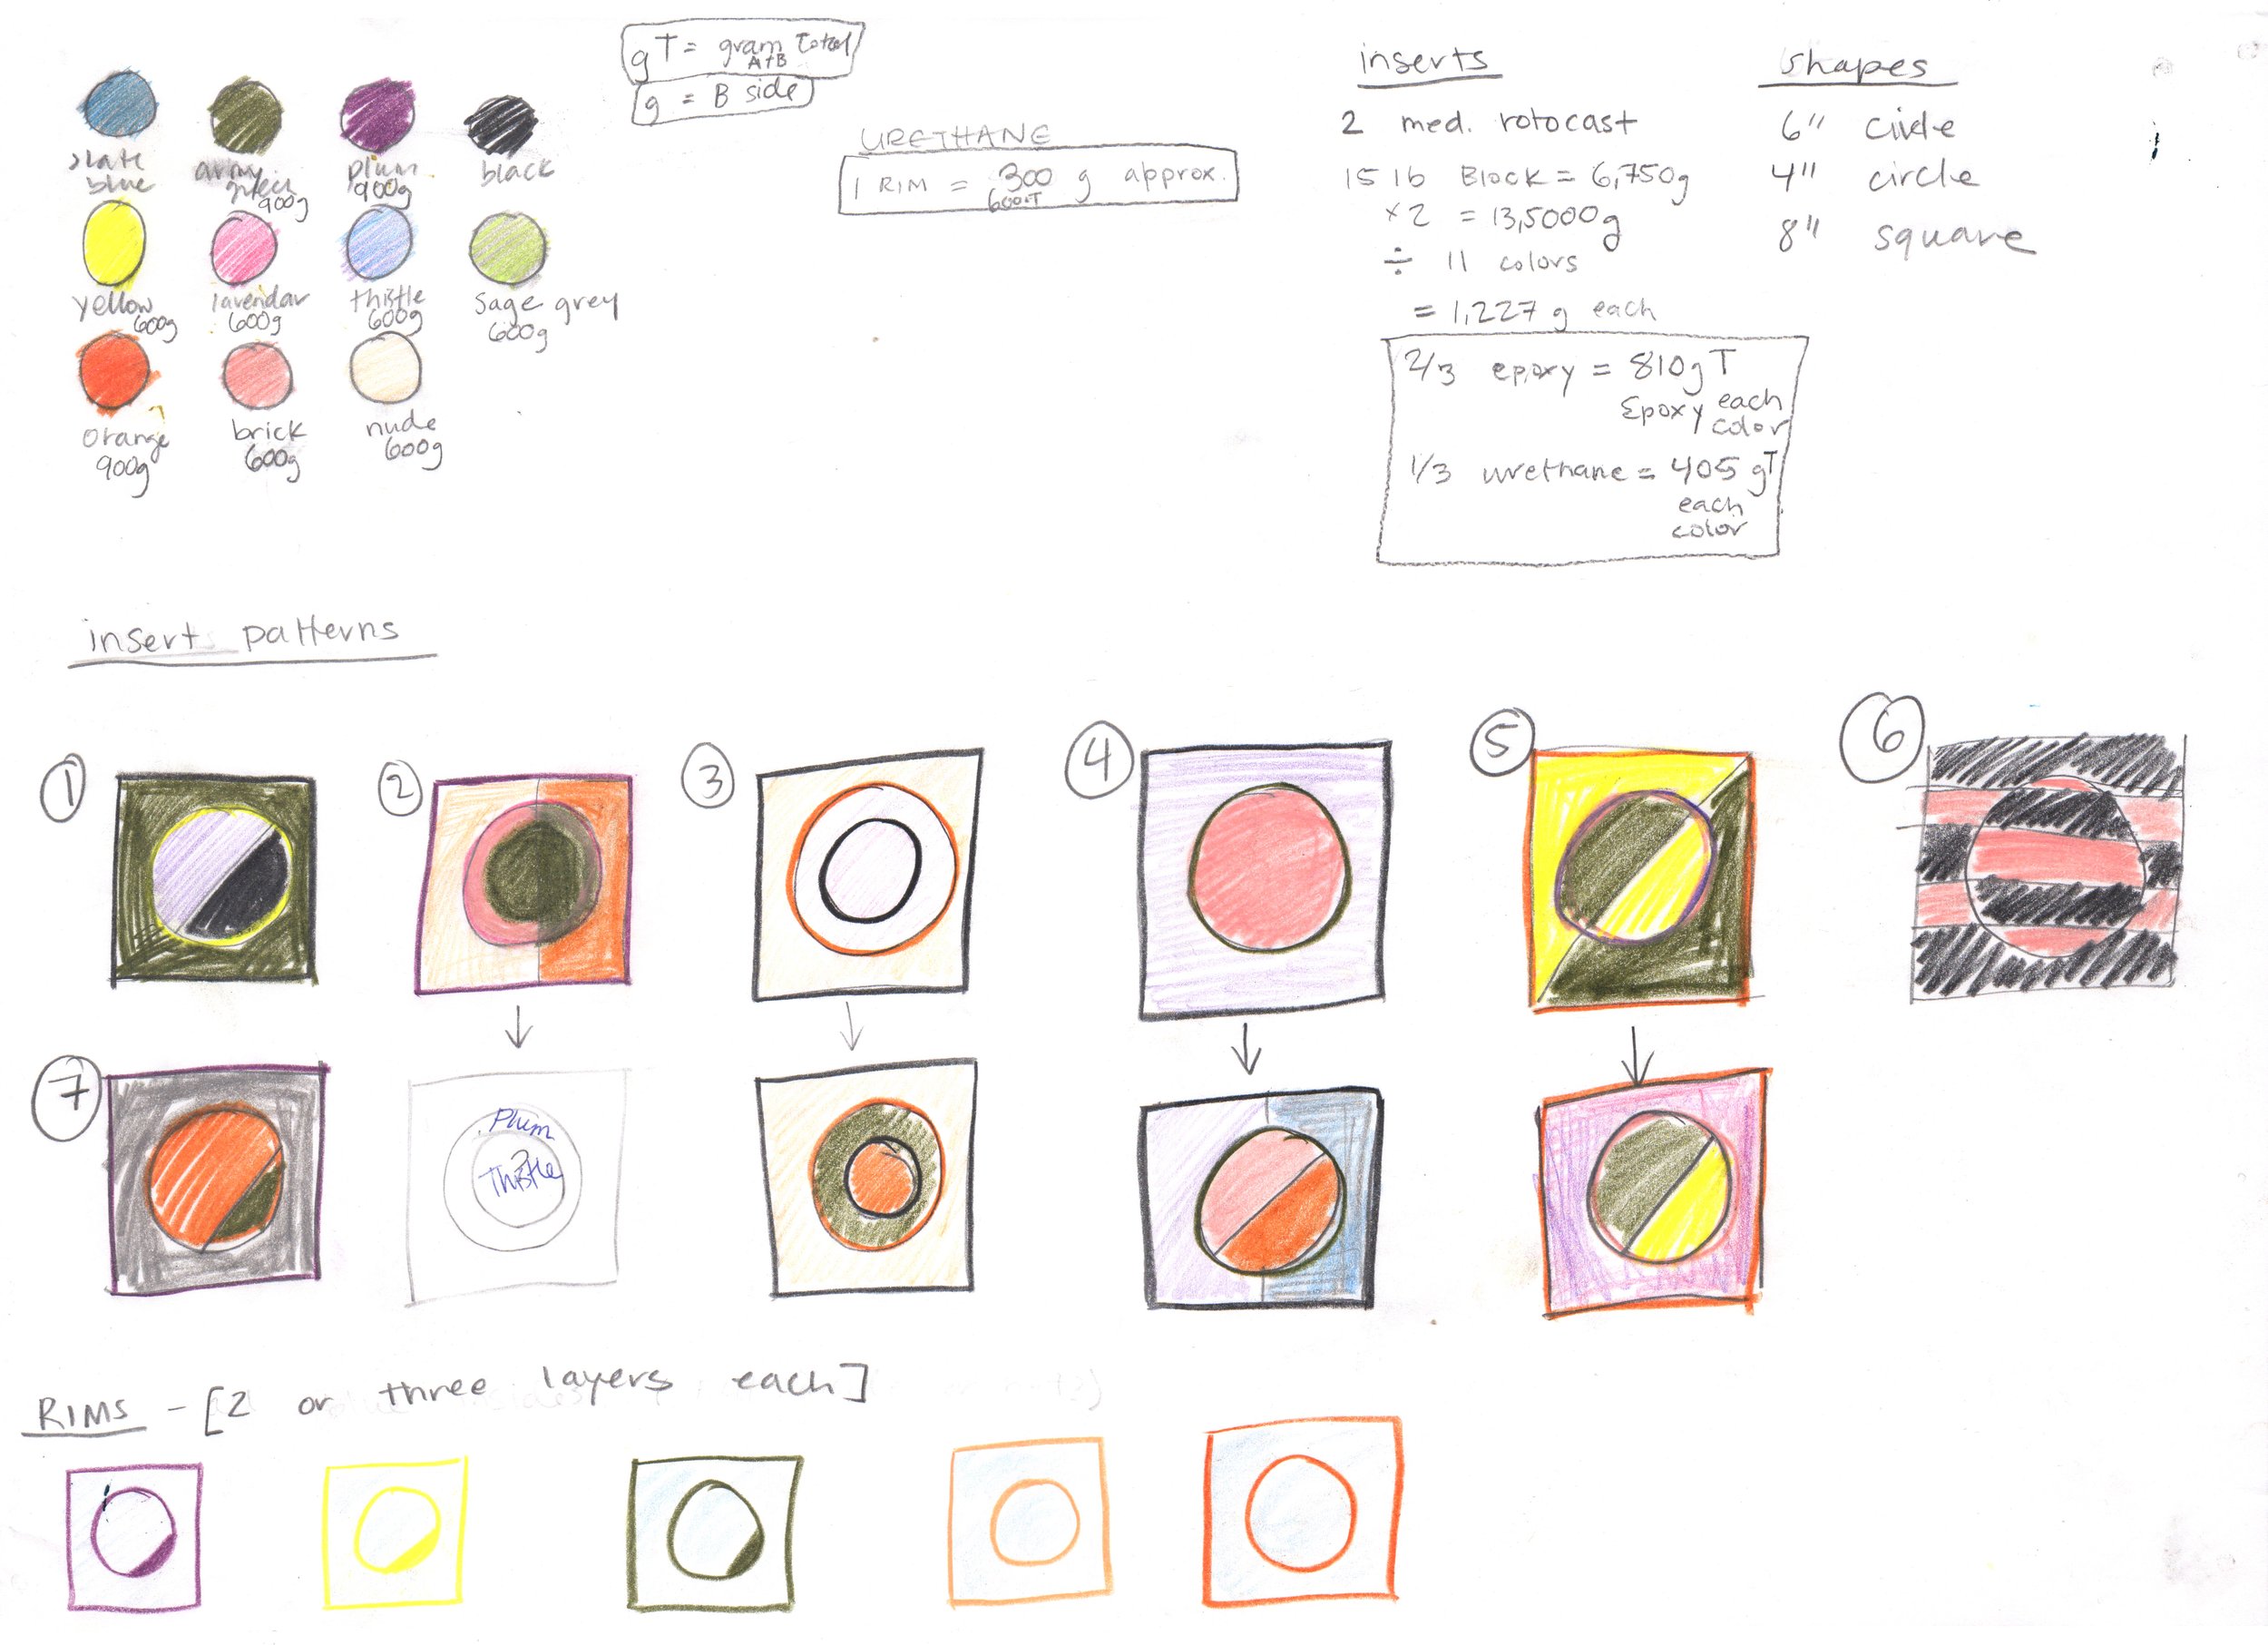 gT = gram total
A+B
g = B side
slate
blue
army
green
900g
plum
900g
black
yellow
600g
lavendar
600g
thistle
600g
sage grey
600g
orange
900g
brick
600g
nude
600g
URETHANE
1 RIM = 300 g approx.
600gT
inserts
2 med. rotocast
15 lb Block = 6,750g
×2 = 13,5000g
÷ 11 colors
= 1,227 g each
2/3 epoxy = 810gT
Epoxy each
color
1/3 urethane = 405 gT
each
color
shapes
6" circle
4" circle
8" square
inserts patterns
1
2
3
4
5
6
7
Plum
Thistle
RIMS - [2 or three layers each]